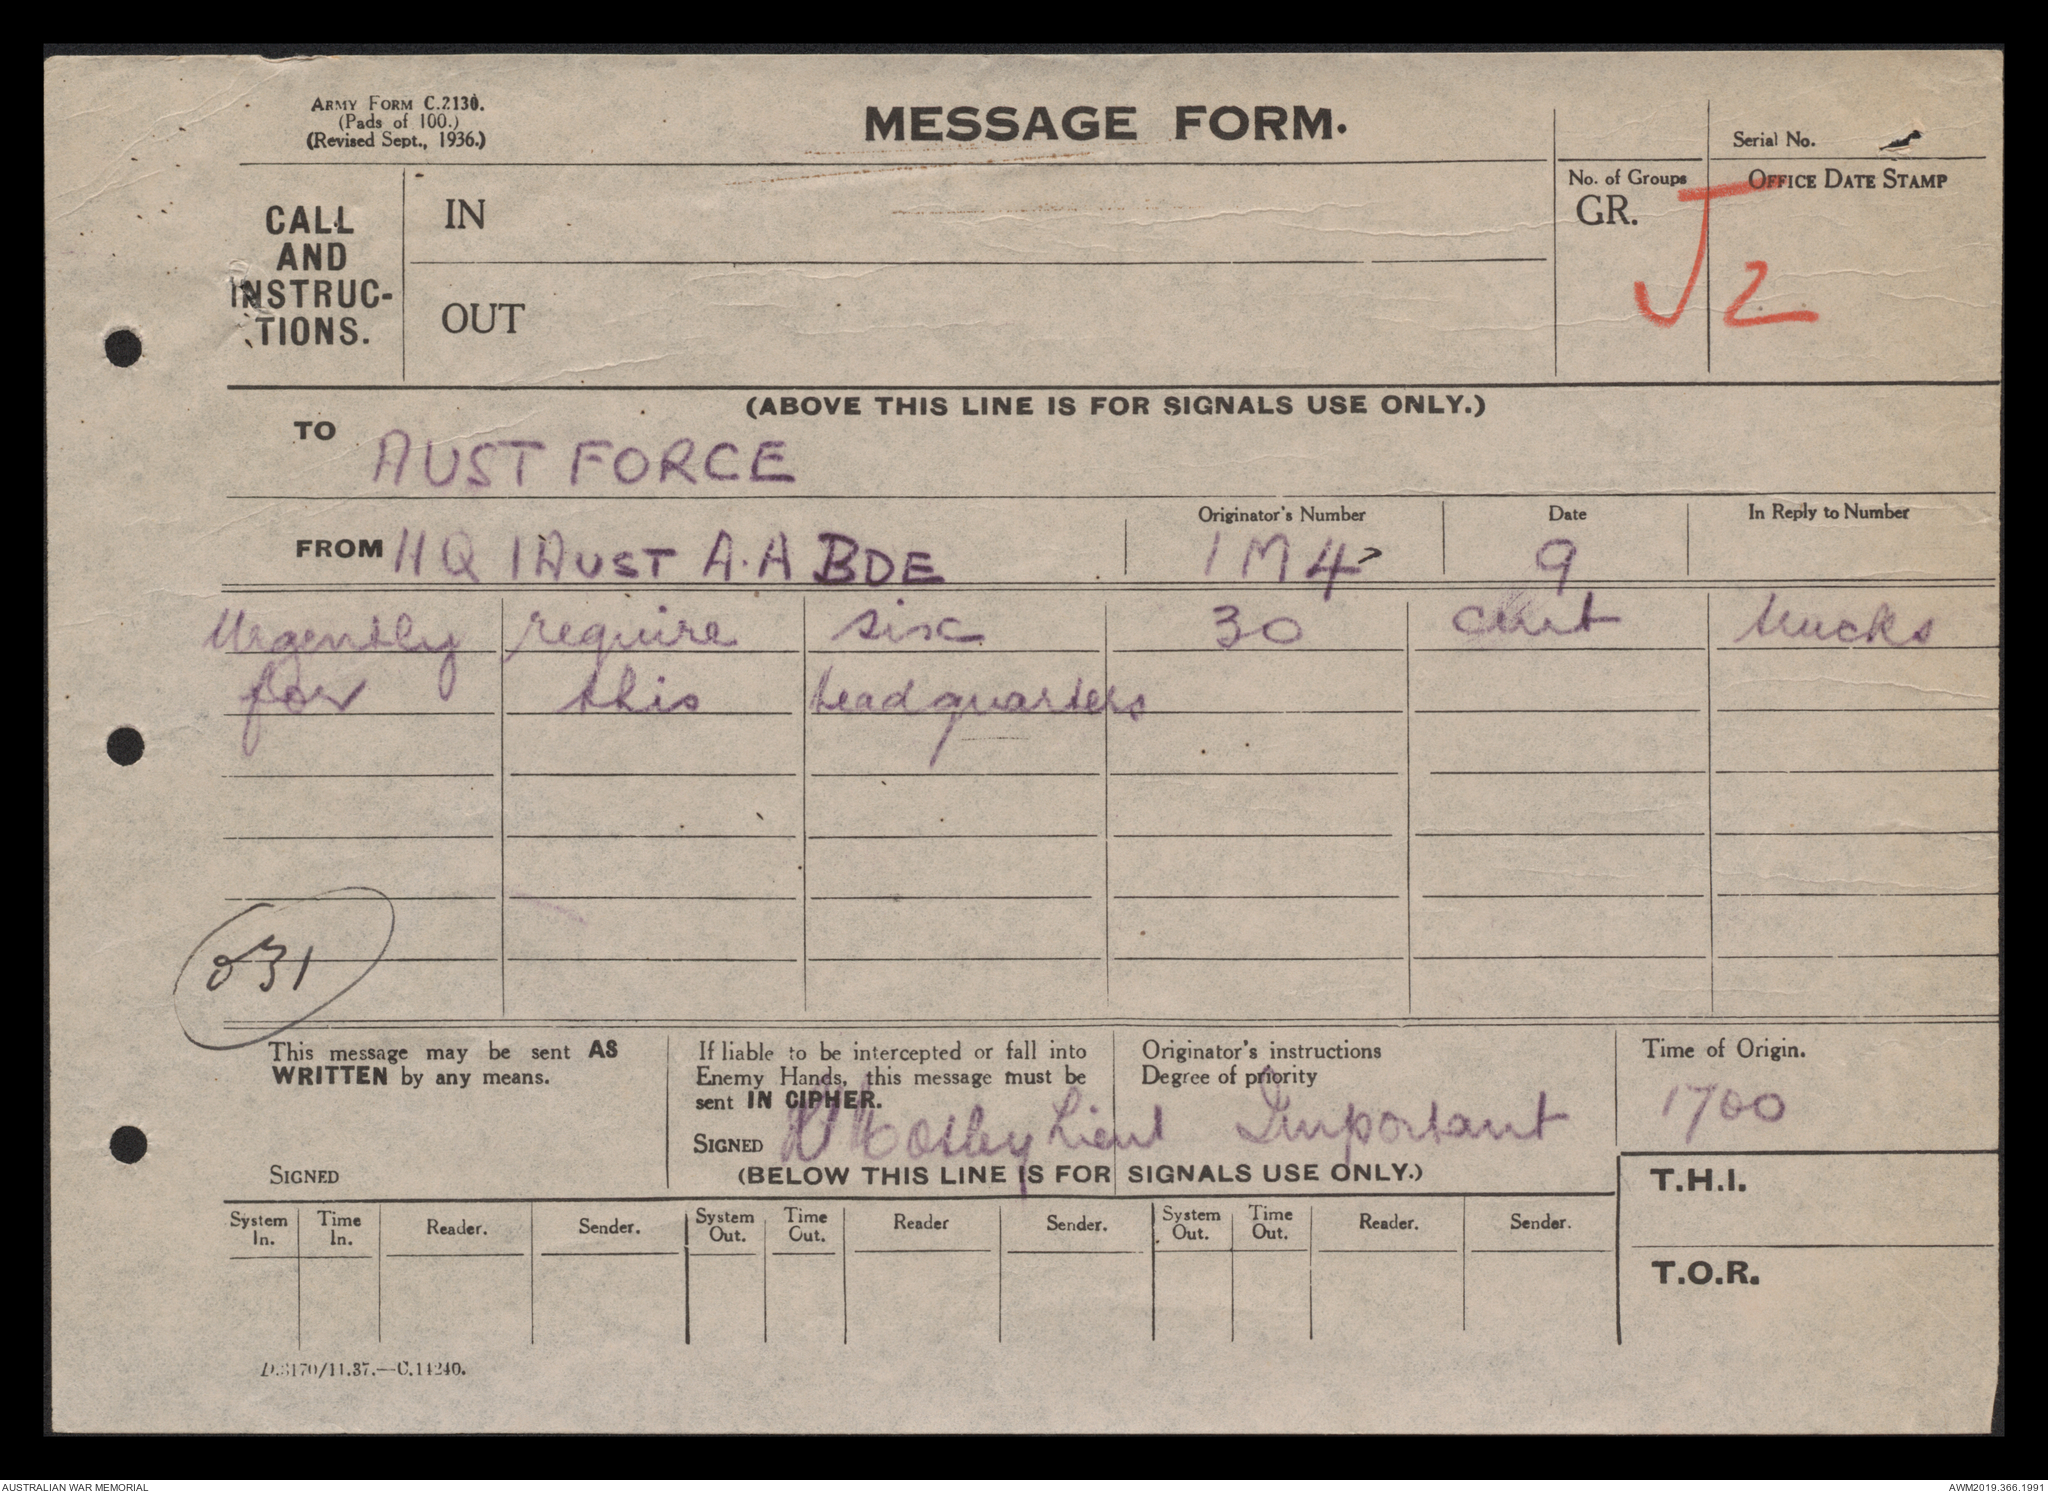 ARMY FORM C.2130.
(Pads of 100.)
(Revised Sept., 1936.)
MESSAGE FORM.
Serial No.
CALL
AND
INSTRUC-
TIONS.
IN
OUT
No. of Groups
GR.
OFFICE DATE STAMP
J2
(ABOVE THIS LINE IS FOR SIGNALS USE ONLY.)
TO AUST FORCE
FROM HQ 1 AUST A.A BDE
Originator's Number
1M4
Date
9
In Reply to Number
Urgently require six 30 cwt trucks
for this headquarters
231
This message may be sent AS
WRITTEN by any means.
SIGNED
If liable to be intercepted or fall into
Enemy Hands, this message must be
sent IN CIPHER.
SIGNED Lieut
Originator's instructions
Degree of priority
Important
Time of Origin.
1700
(BELOW THIS LINE IS FOR SIGNALS USE ONLY.)
T.H.I.
T.O.R.
System In. Time In. Reader. Sender. System Out. Time Out. Reader Sender. System Out. Time Out. Reader. Sender.
D.3170/11.37.—C.14240.
AUSTRALIAN WAR MEMORIAL
AWM2019.366.1991